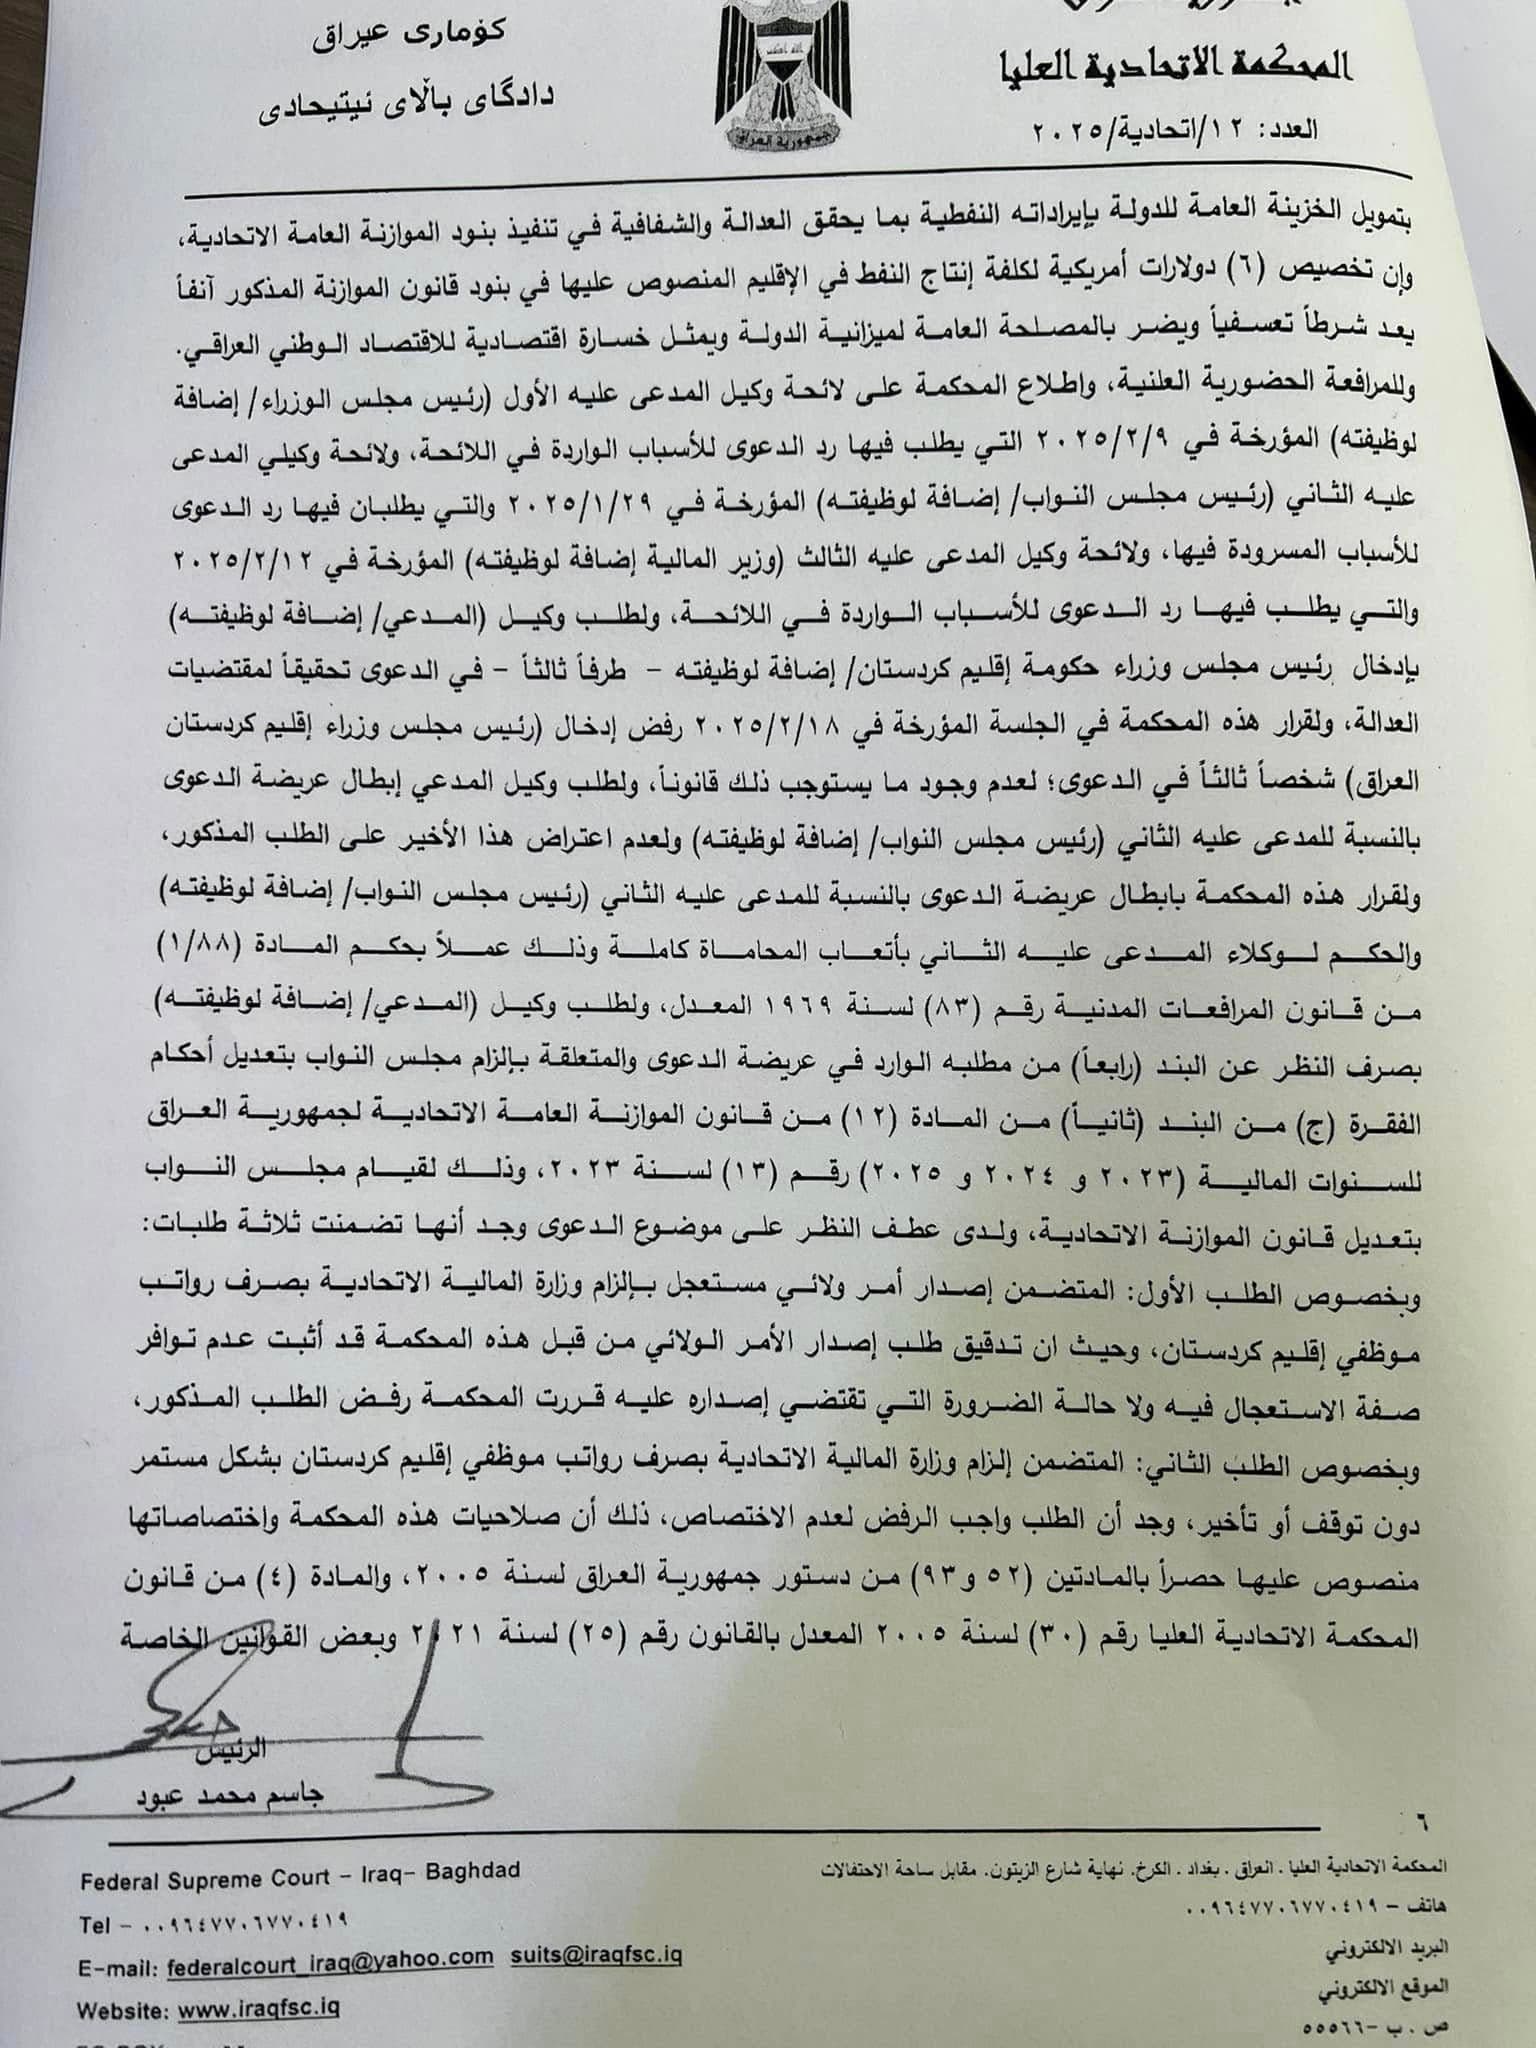 كۆماری عیراق
دادگای باڵای ئیتیحادی
المحكمة الاتحادية العليا
العدد: ١٢/اتحادية/٢٠٢٥
جمهورية العراق
بتمويل الخزينة العامة للدولة بإيراداته النفطية بما يحقق العدالة والشفافية في تنفيذ بنود الموازنة العامة الاتحادية،
وإن تخصيص (٦) دولارات أمريكية لكلفة إنتاج النفط في الإقليم المنصوص عليها في بنود قانون الموازنة المذكور آنفاً
يعد شرطاً تعسفياً ويضر بالمصلحة العامة لميزانية الدولة ويمثل خسارة اقتصادية للاقتصاد الوطني العراقي.
وللمرافعة الحضورية العلنية، واطلاع المحكمة على لائحة وكيل المدعى عليه الأول (رئيس مجلس الوزراء/ إضافة
لوظيفته) المؤرخة في ٢٠٢٥/٢/٩ التي يطلب فيها رد الدعوى للأسباب الواردة في اللائحة، ولائحة وكيلي المدعى
عليه الثاني (رئيس مجلس النواب/ إضافة لوظيفته) المؤرخة في ٢٠٢٥/١/٢٩ والتي يطلبان فيها رد الدعوى
للأسباب المسرودة فيها، ولائحة وكيل المدعى عليه الثالث (وزير المالية إضافة لوظيفته) المؤرخة في ٢٠٢٥/٢/١٢
والتي يطلب فيها رد الدعوى للأسباب الواردة في اللائحة، ولطلب وكيل (المدعي/ إضافة لوظيفته)
بإدخال رئيس مجلس وزراء حكومة إقليم كردستان/ إضافة لوظيفته - طرفاً ثالثاً - في الدعوى تحقيقاً لمقتضيات
العدالة، ولقرار هذه المحكمة في الجلسة المؤرخة في ٢٠٢٥/٢/١٨ رفض إدخال (رئيس مجلس وزراء إقليم كردستان
العراق) شخصاً ثالثاً في الدعوى؛ لعدم وجود ما يستوجب ذلك قانوناً، ولطلب وكيل المدعي إبطال عريضة الدعوى
بالنسبة للمدعى عليه الثاني (رئيس مجلس النواب/ إضافة لوظيفته) ولعدم اعتراض هذا الأخير على الطلب المذكور،
ولقرار هذه المحكمة بابطال عريضة الدعوى بالنسبة للمدعى عليه الثاني (رئيس مجلس النواب/ إضافة لوظيفته)
والحكم لوكلاء المدعى عليه الثاني بأتعاب المحاماة كاملة وذلك عملاً بحكم المادة (١/٨٨)
من قانون المرافعات المدنية رقم (٨٣) لسنة ١٩٦٩ المعدل، ولطلب وكيل (المدعي/ إضافة لوظيفته)
بصرف النظر عن البند (رابعاً) من مطلبه الوارد في عريضة الدعوى والمتعلقة بإلزام مجلس النواب بتعديل أحكام
الفقرة (ج) من البند (ثانياً) من المادة (١٢) من قانون الموازنة العامة الاتحادية لجمهورية العراق
للسنوات المالية (٢٠٢٣ و ٢٠٢٤ و ٢٠٢٥) رقم (١٣) لسنة ٢٠٢٣، وذلك لقيام مجلس النواب
بتعديل قانون الموازنة الاتحادية، ولدى عطف النظر على موضوع الدعوى وجد أنها تضمنت ثلاثة طلبات:
وبخصوص الطلب الأول: المتضمن إصدار أمر ولائي مستعجل بإلزام وزارة المالية الاتحادية بصرف رواتب
موظفي إقليم كردستان، وحيث ان تدقيق طلب إصدار الأمر الولائي من قبل هذه المحكمة قد أثبت عدم توافر
صفة الاستعجال فيه ولا حالة الضرورة التي تقتضي إصداره عليه قررت المحكمة رفض الطلب المذكور،
وبخصوص الطلب الثاني: المتضمن إلزام وزارة المالية الاتحادية بصرف رواتب موظفي إقليم كردستان بشكل مستمر
دون توقف أو تأخير، وجد أن الطلب واجب الرفض لعدم الاختصاص، ذلك أن صلاحيات هذه المحكمة واختصاصاتها
منصوص عليها حصراً بالمادتين (٥٢ و٩٣) من دستور جمهورية العراق لسنة ٢٠٠٥، والمادة (٤) من قانون
المحكمة الاتحادية العليا رقم (٣٠) لسنة ٢٠٠٥ المعدل بالقانون رقم (٢٥) لسنة ٢٠٢١ وبعض القوانين الخاصة
الرئيس
جاسم محمد عبود
٦
المحكمة الاتحادية العليا . العراق . بغداد . الكرخ. نهاية شارع الزيتون. مقابل ساحة الاحتفالات
هاتف – ٠٠٩٦٤٧٧٠٦٧٧٠٤١٩
البريد الالكتروني
الموقع الالكتروني
ص . ب -٥٥٥٦٦
Federal Supreme Court – Iraq– Baghdad
Tel – ٠٠٩٦٤٧٧٠٦٧٧٠٤١٩
E-mail: federalcourt_iraq@yahoo.com suits@iraqfsc.iq
Website: www.iraqfsc.iq